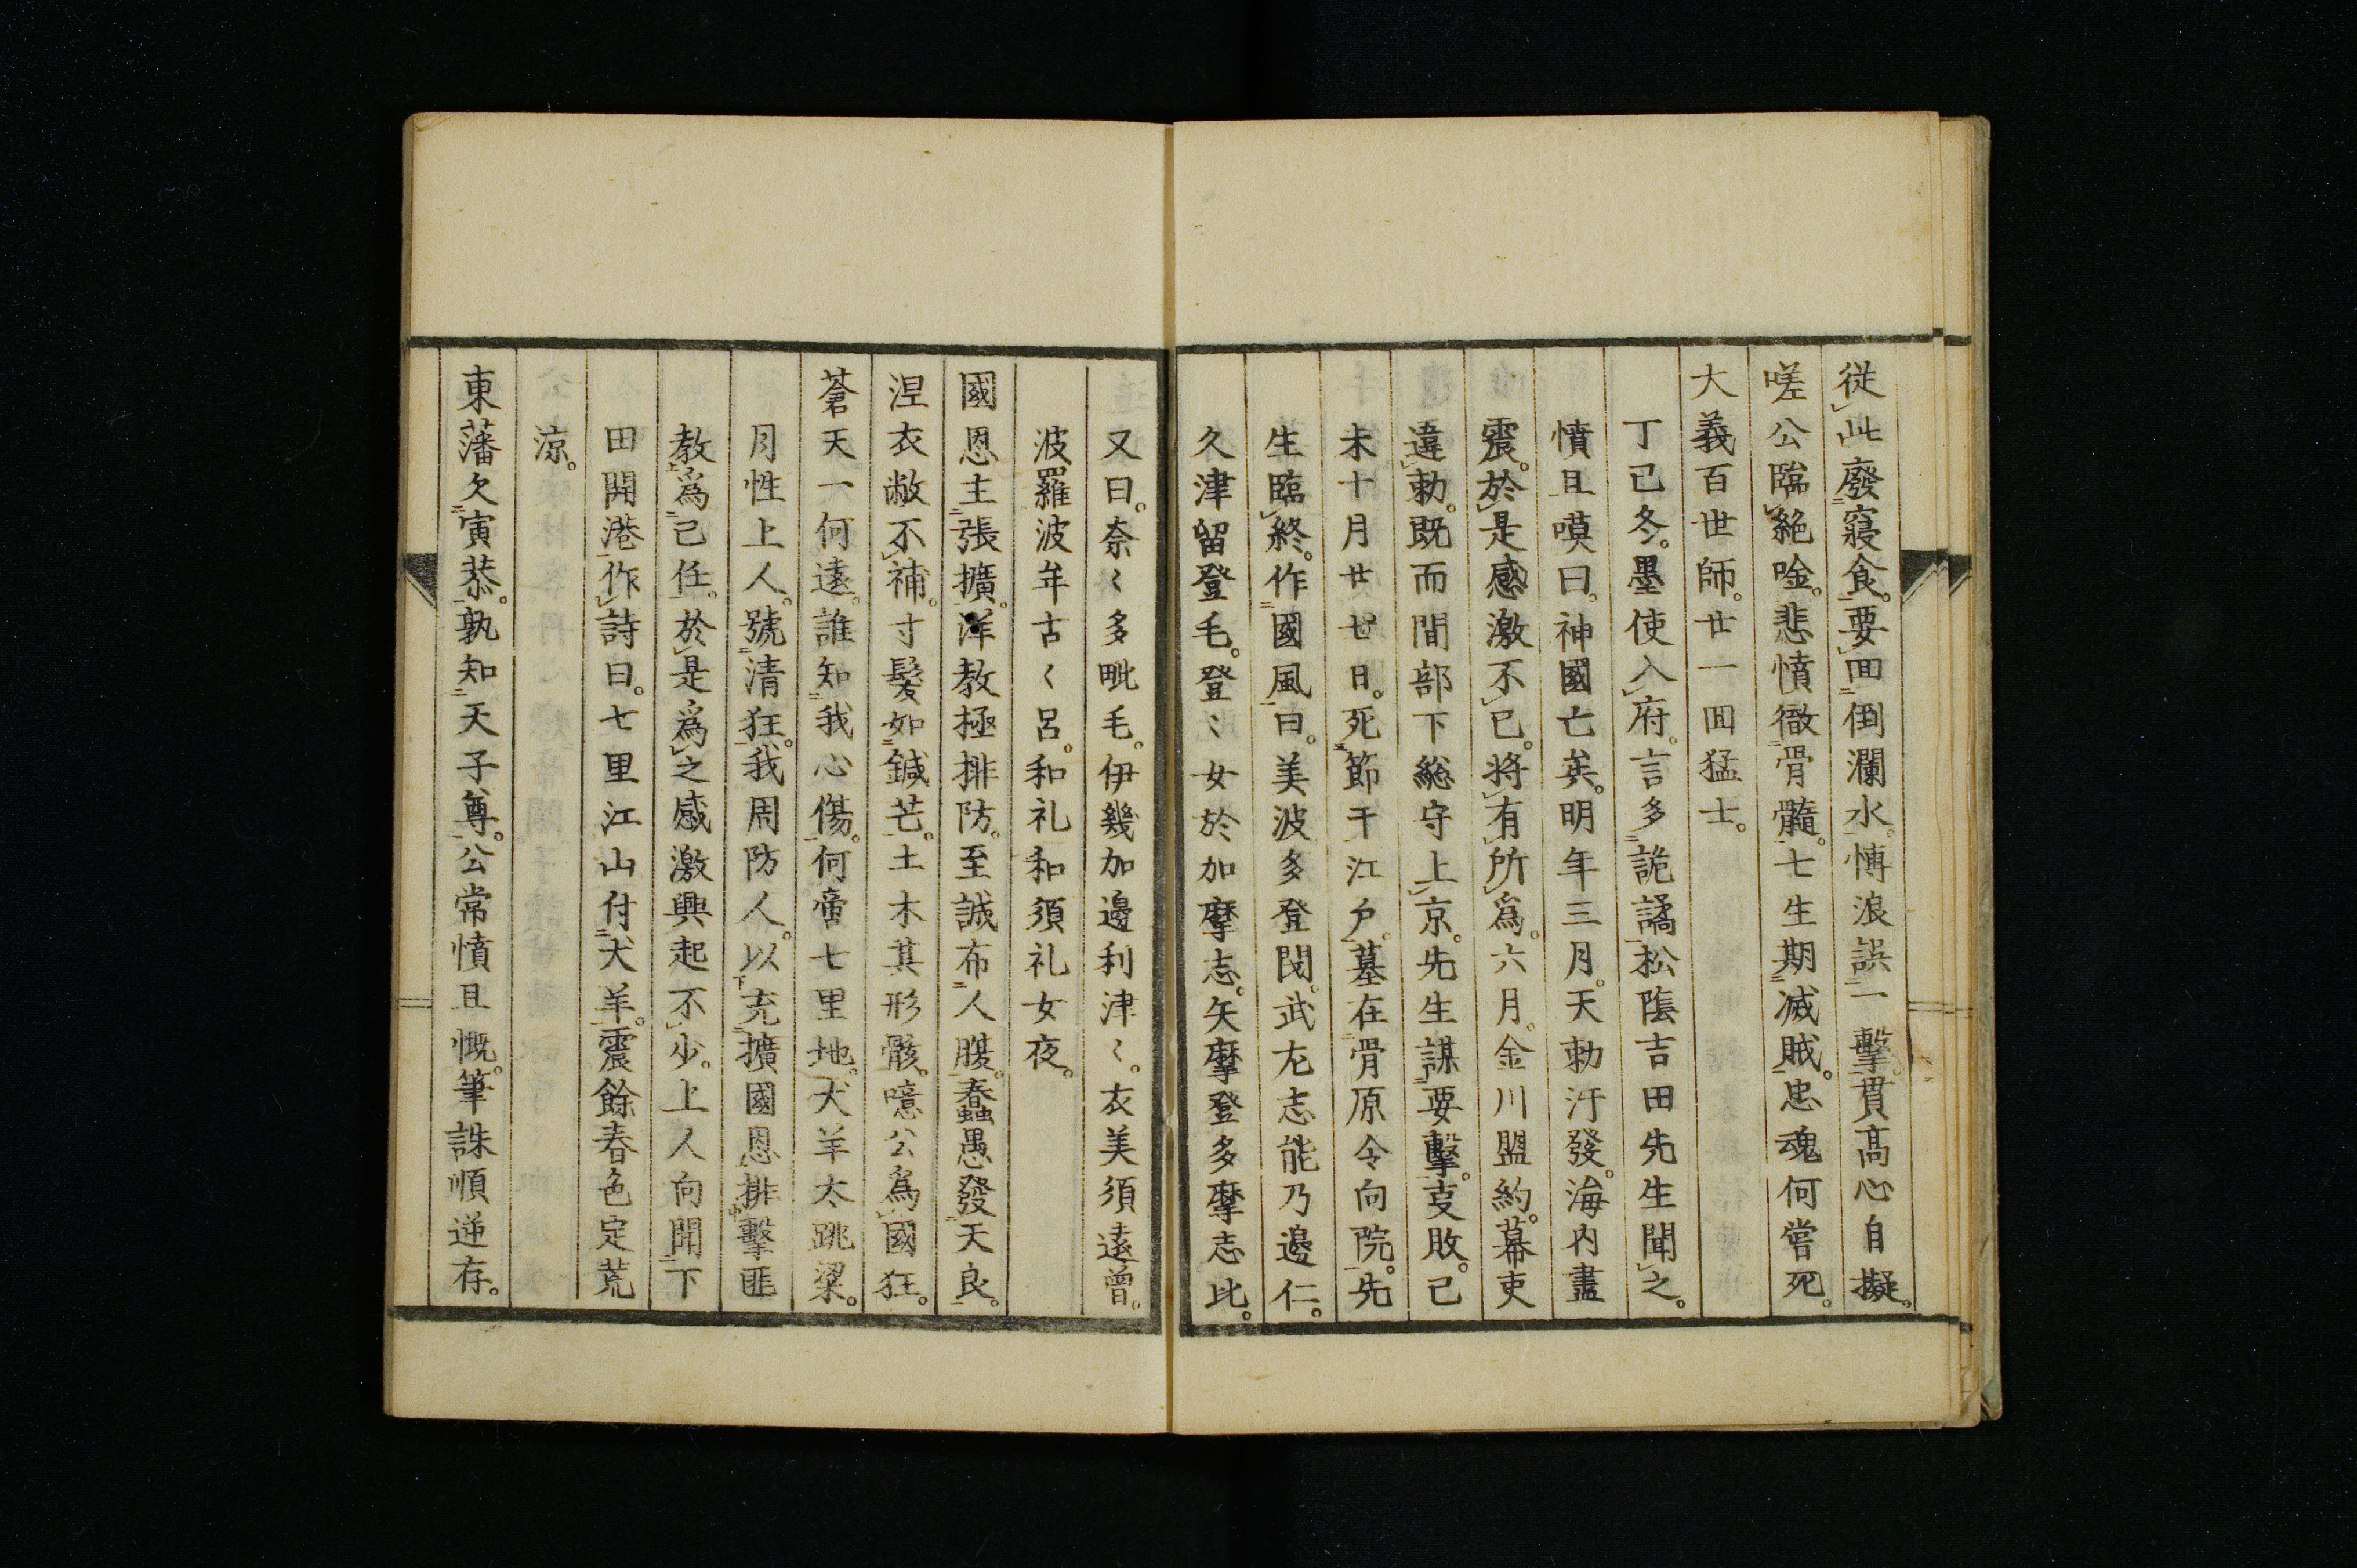 從此廢寢食。要回倒瀾水。博浪誤一擊。貫高心自擬。
嗟公臨絕唫。悲憤徹骨髓。七生期滅賊。忠魂何嘗死。
大義百世師。廿一回猛士。
丁已冬。墨使入府。言多詭譎。松陰吉田先生聞之。
憤且嘆曰。神國亡矣。明年三月。天勅汙發。海内盡
震。於是感激不已。將有所爲。六月。金川盟約。幕吏
違勅。既而間部下総守上京。先生謀要擊。支敗。己
未十月廿七日。死節于江戶。墓在骨原令向院。先
生臨終。作國風曰。美波多登閔。武左志能乃邊仁。
久津留登毛。登〻女於加摩志。矢摩登多摩志比。
又曰。奈〻多毗毛。伊幾加邊利津〻。衣美須遠曾。
波羅波牟古〻呂。和礼和須礼女夜。
國恩主張擴。洋教極排防。至誠布人腹。蠢愚發天良。
涅衣敝不補。寸髮如鍼芒。土木其形骸。噫公爲國狂。
蒼天一何遠。誰知我心傷。何啻七里地。犬羊太跳梁。
月性上人。號清狂。我周防人。以充擴國恩排擊匪
教爲己任。於是爲之感激興起不少。上人向聞下
田開港作詩曰。七里江山付犬羊。震餘春色定荒
涼。
東藩久寅恭。孰知天子尊。公常憤且慨。筆誅順逆存。